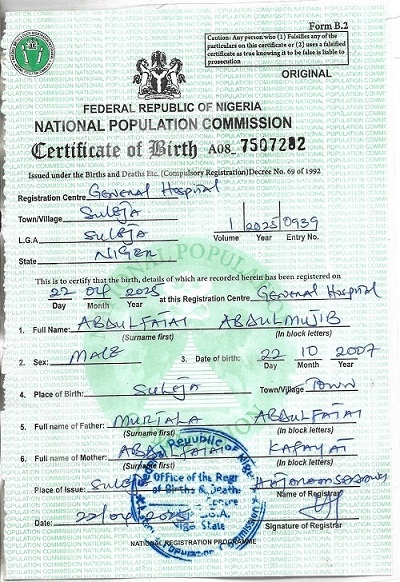 Form B.2
Caution: Any person who (1) Falsifies any of the
particulars on this certificate or (2) uses a falsified
certificate as true knowing it to be false is liable to
prosecution
ORIGINAL
FEDERAL REPUBLIC OF NIGERIA
NATIONAL POPULATION COMMISSION
Certificate of Birth A08_ 7507282
Issued under the Births and Deaths Etc. (Compulsory Registration) Decree No. 69 of 1992
Registration Centre General Hospital
Town/Village Suleja
L.G.A Suleja
State NIGER
1 2025 0939
Volume Year Entry No.
This is to certify that the birth, details of which are recorded herein has been registered on
22 04 2025 at this Registration Centre General Hospital
Day Month Year
1. Full Name: ABDULFATAI ABDULMUJIB
(Surname first) (In block letters)
2. Sex: MALE 3. Date of birth: 22 10 2007
Day Month Year
4. Place of Birth: SULEJA Town/Village TOWN
5. Full name of Father: MURTALA ABDULFATAI
(Surname first) (In block letters)
6. Full name of Mother: ABDULFATAI KAFAYAT
(Surname first) (In block letters)
Place of Issue: Suleja
Name of Registrar
Date: 22/04/2025
Signature of Registrar
Office of the Regr
of Births & Deaths
Centre
L.G.A.
State
NATIONAL REGISTRATION PROGRAMME